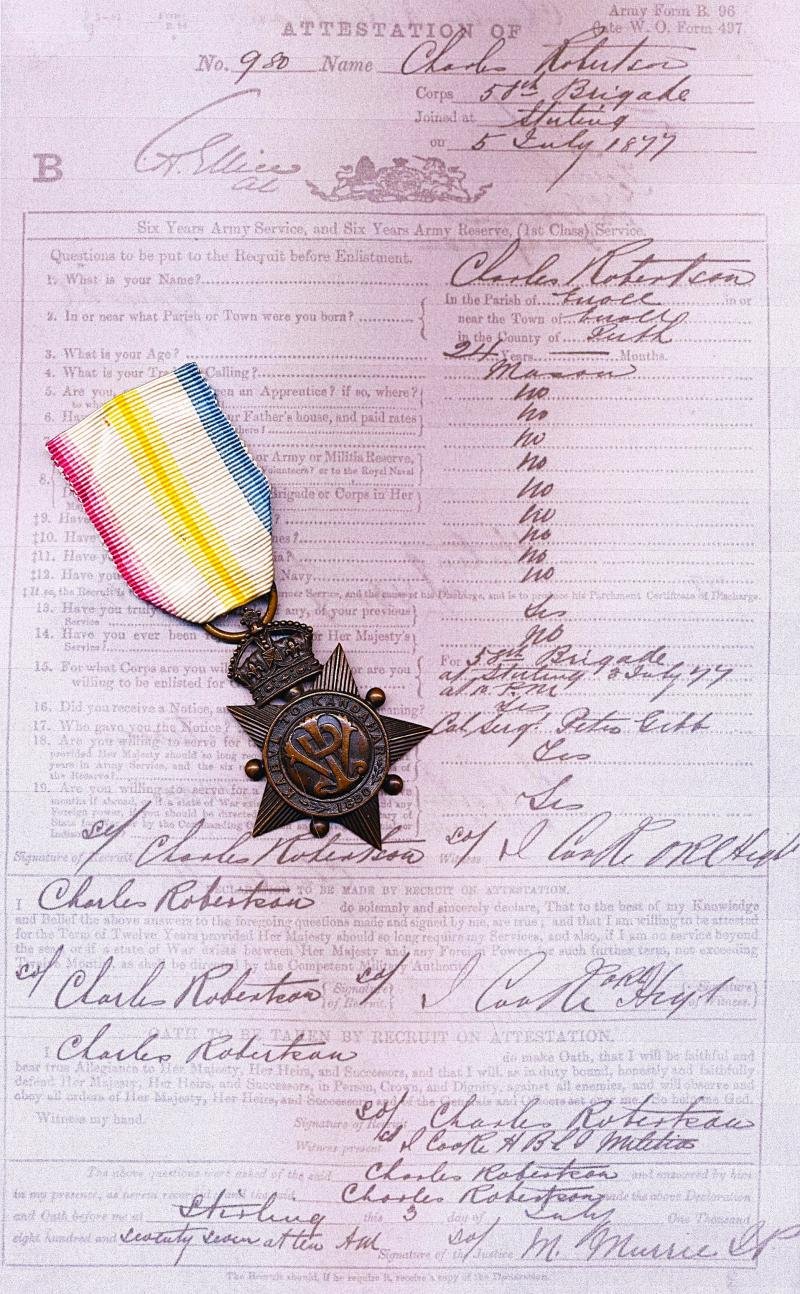 Army Form B. 96
late W. O. Form 497.
ATTESTATION OF
No. 980 Name Charles Robertson
Corps 58th Brigade
Joined at Stirling
on 5 July 1877
B
Six Years Army Service, and Six Years Army Reserve, (1st Class) Service.
Questions to be put to the Recruit before Enlistment.
1. What is your Name? Charles Robertson
2. In or near what Parish or Town were you born?
In the Parish of in or
near the Town of
in the County of Perth
3. What is your Age? 24 Years Months.
4. What is your Calling? Mason
5. Are you an Apprentice? if so, where? no
no
6. your Father's house, and paid rates
no
or Army or Militia Reserve, no
Volunteers? or to the Royal Naval
8. no
Brigade or Corps in Her
‡9. Have no
‡10. Have no
‡11. Have no
‡12. Have you Navy no
‡If so, the Recruit is Service, and the cause of his Discharge, and is to produce his Parchment Certificate of Discharge.
13. Have you truly any, of your previous Yes
Service
14. Have you ever been Her Majesty's no
Service?
15. For what Corps are you or are you
willing to be enlisted for
For 58th Brigade
at Stirling 3 July 77
at
16. Did you receive a Notice, meaning? Yes
17. Who gave you the Notice? Col Sergt Peter Gibb
18. Are you willing to serve for Yes
provided Her Majesty should so long
years in Army Service, and the six
the Reserve?
19. Are you willing to serve for a Yes
months if abroad, if a state of War any
Foreign power, if you should be directed
KABUL TO KANDAHAR
VRI
1880
Signature of Recruit Charles Robertson Witness I Cooke
DECLARATION TO BE MADE BY RECRUIT ON ATTESTATION.
I Charles Robertson do solemnly and sincerely declare, That to the best of my Knowledge
and Belief the above answers to the foregoing questions made and signed by me, are true; and that I am willing to be attested
for the Term of Twelve Years provided Her Majesty should so long require my Services, and also, if I am on service beyond
the seas, or if a state of War exists between Her Majesty and any Foreign Power, for such further term, not exceeding
Twelve Months, as shall be directed by the Competent Military Authority.
Charles Robertson Signature of Recruit. I Cooke Signature of Witness.
OATH TO BE TAKEN BY RECRUIT ON ATTESTATION.
I Charles Robertson do make Oath, that I will be faithful and
bear true Allegiance to Her Majesty, Her Heirs, and Successors, and that I will, as in duty bound, honestly and faithfully
defend Her Majesty, Her Heirs, and Successors, in Person, Crown, and Dignity, against all enemies, and will observe and
obey all orders of Her Majesty, Her Heirs, and Successors, and of the Generals and Officers set over me. So help me God.
Witness my hand.
Signature of Recruit Charles Robertson
Witness present I Cooke Militia
The above questions were asked of the said Charles Robertson and answered by him
in my presence, as herein recorded; and the said Charles Robertson made the above Declaration
and Oath before me at Stirling this 3 day of July One Thousand
eight hundred and seventy seven at ten AM
Signature of the Justice M. Murrie J.P.
The Recruit should, if he require it, receive a copy of the Declaration.